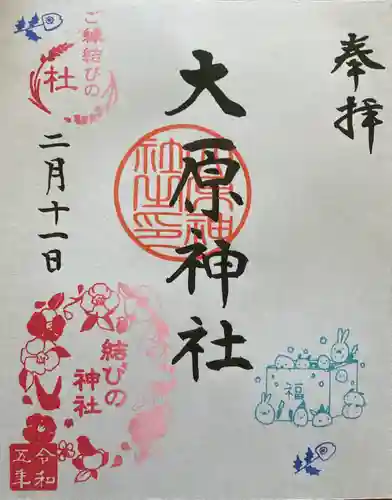 奉拝
大原神社
大原神社之印
ご縁結びの
杜
二月十一日
結びの
神社
令和
五年
福